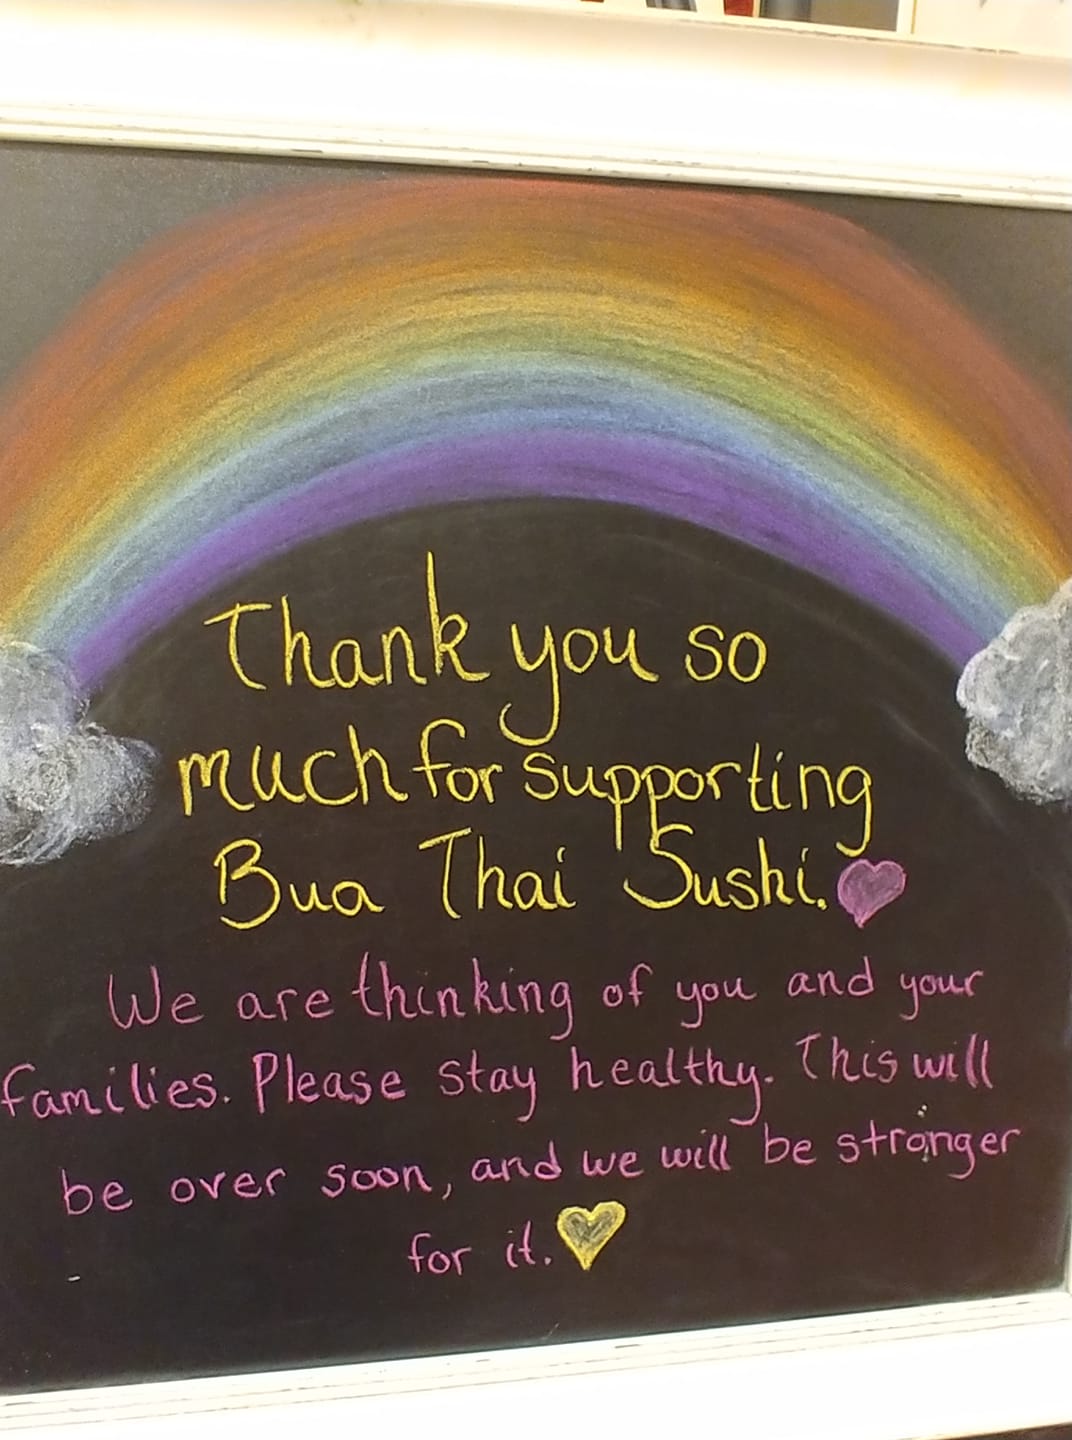 Thank you so
much for supporting
Bua Thai Sushi.
We are thinking of you and your
families. Please stay healthy. This will
be over soon, and we will be stronger
for it.